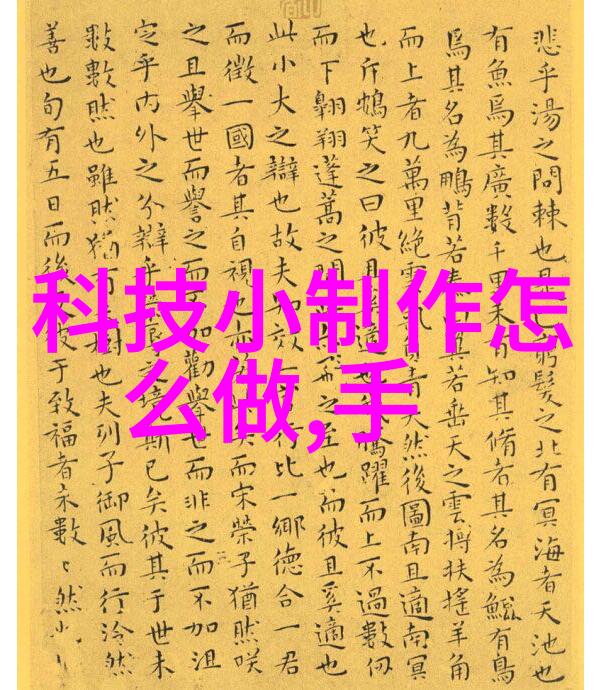 科技小制作怎
么做,手
悲乎湯之問棘也是窮髮之北有冥海者天池也
有魚焉其廣數千里未有知其脩者其名為鯤有鳥
焉其名為鵬背若若垂天之雲摶扶搖羊角
而上者九萬里絕雲青天然後圖南且適南冥
也斥鴳笑之曰彼且適也騰躍而上不過數仞
而下翱翔蓬蒿之間之至也而彼且奚適也
此小大之辯也故夫知效一行比一鄉德合一君
而徵一國者其自視也亦矣而宋榮子猶然咲
之且舉世而譽之而加勸舉世而非之而不加沮
定乎內外之分辯乎辱之境斯已矣彼其于世未
數數然也雖然猶有樹也夫列子御風而行泠然
善也旬有五日而後彼于致福者未數〻然